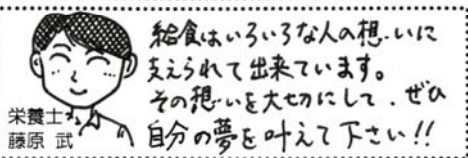 給食はいろいろな人の想いに
支えられて出来ています。
その想いを大切にして、ぜひ
自分の夢を叶えて下さい!!
栄養士
藤原 武